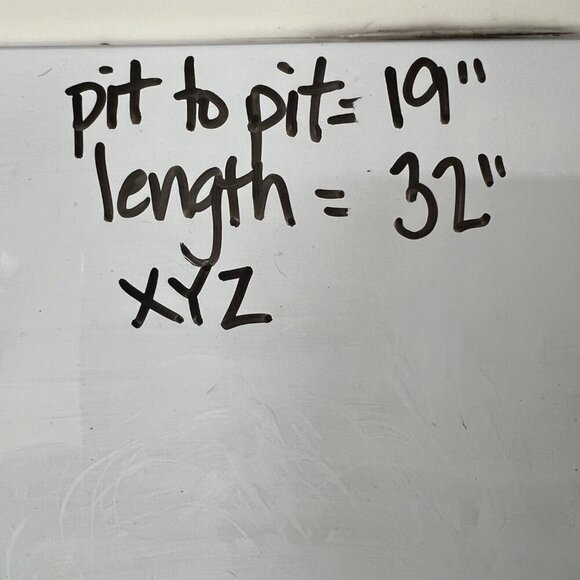 pit to pit = 19"
length = 32"
XYZ